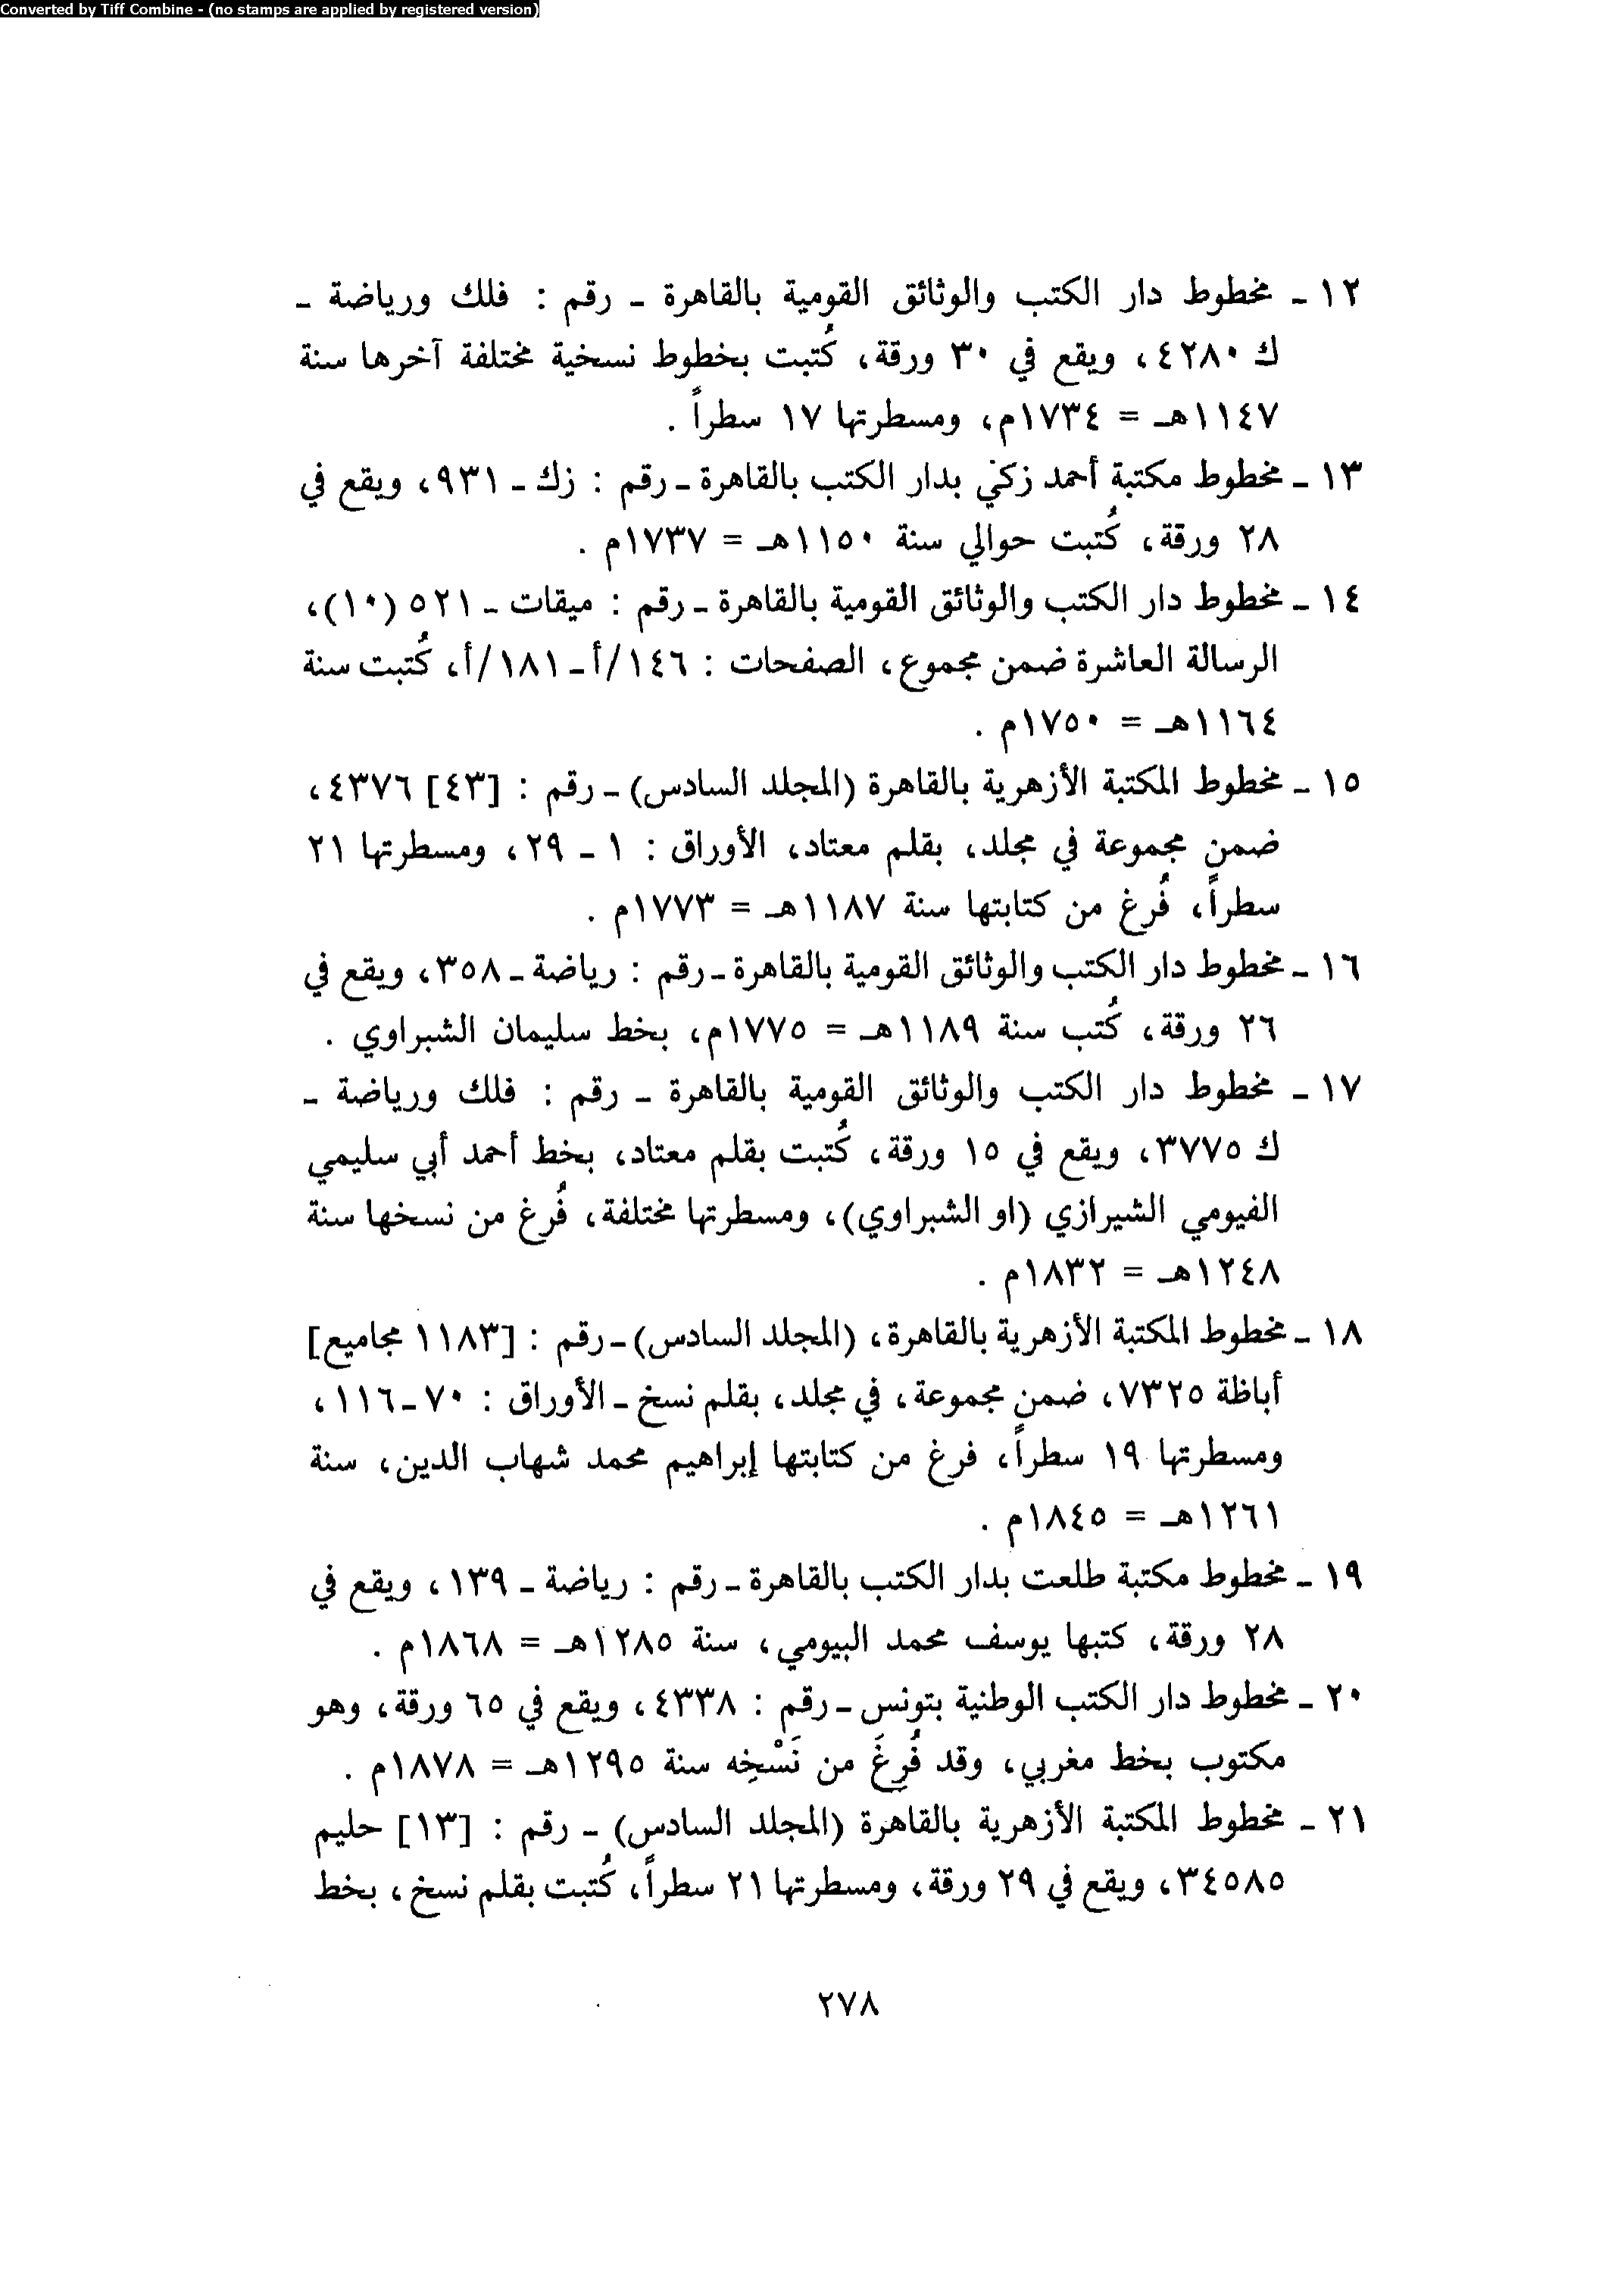 Converted by Tiff Combine - (no stamps are applied by registered version)
١٢ ـ مخطوط دار الكتب والوثائق القومية بالقاهرة ـ رقم : فلك ورياضة ـ
ك ٤٢٨٠، ويقع في ٣٠ ورقة، كُتبت بخطوط نسخية مختلفة آخرها سنة
١١٤٧هـ = ١٧٣٤م، ومسطرتها ١٧ سطراً .
١٣ ـ مخطوط مكتبة أحمد زكي بدار الكتب بالقاهرة ـ رقم : زك ـ ٩٣١، ويقع في
٢٨ ورقة، كُتبت حوالي سنة ١١٥٠هـ = ١٧٣٧م .
١٤ ـ مخطوط دار الكتب والوثائق القومية بالقاهرة ـ رقم : ميقات ـ ٥٢١ (١٠)،
الرسالة العاشرة ضمن مجموع، الصفحات : ١٤٦/أ ـ ١٨١/أ، كُتبت سنة
١١٦٤هـ = ١٧٥٠م .
١٥ ـ مخطوط المكتبة الأزهرية بالقاهرة (المجلد السادس) ـ رقم : [٤٣] ٤٣٧٦،
ضمن مجموعة في مجلد، بقلم معتاد، الأوراق : ١ ـ ٢٩، ومسطرتها ٢١
سطراً، فُرغ من كتابتها سنة ١١٨٧هـ = ١٧٧٣م .
١٦ ـ مخطوط دار الكتب والوثائق القومية بالقاهرة ـ رقم : رياضة ـ ٣٥٨، ويقع في
٢٦ ورقة، كُتب سنة ١١٨٩هـ = ١٧٧٥م، بخط سليمان الشبراوي .
١٧ ـ مخطوط دار الكتب والوثائق القومية بالقاهرة ـ رقم : فلك ورياضة ـ
ك ٣٧٧٥، ويقع في ١٥ ورقة، كُتبت بقلم معتاد، بخط أحمد أبي سليمي
الفيومي الشيرازي (او الشبراوي)، ومسطرتها مختلفة، فُرغ من نسخها سنة
١٢٤٨هـ = ١٨٣٢م .
١٨ ـ مخطوط المكتبة الأزهرية بالقاهرة، (المجلد السادس) ـ رقم : [١١٨٣ مجاميع]
أباظة ٧٣٢٥، ضمن مجموعة، في مجلد، بقلم نسخ ـ الأوراق : ٧٠ ـ ١١٦،
ومسطرتها ١٩ سطراً، فرغ من كتابتها إبراهيم محمد شهاب الدين، سنة
١٢٦١هـ = ١٨٤٥م .
١٩ ـ مخطوط مكتبة طلعت بدار الكتب بالقاهرة ـ رقم : رياضة ـ ١٣٩، ويقع في
٢٨ ورقة، كتبها يوسف محمد البيومي، سنة ١٢٨٥هـ = ١٨٦٨م .
٢٠ ـ مخطوط دار الكتب الوطنية بتونس ـ رقم : ٤٣٣٨، ويقع في ٦٥ ورقة، وهو
مكتوب بخط مغربي، وقد فُرِغَ من نَسْخِه سنة ١٢٩٥هـ = ١٨٧٨م .
٢١ ـ مخطوط المكتبة الأزهرية بالقاهرة (المجلد السادس) ـ رقم : [١٣] حليم
٣٤٥٨٥، ويقع في ٢٩ ورقة، ومسطرتها ٢١ سطراً، كُتبت بقلم نسخ، بخط
٢٧٨